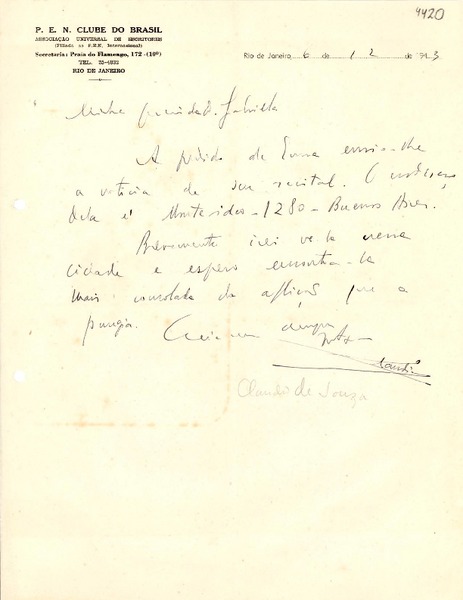 4420
P. E. N. CLUBE DO BRASIL
ASSOCIAÇÃO UNIVERSAL DE ESCRITORES
(Filiada ao P.E.N. Internacional)
Secretaria: Praia do Flamengo, 172-(10º)
TEL.
RIO DE JANEIRO
Rio de Janeiro, 6 de 12 de 943
Minha querida D. Gabriela
A pedido de envio-lhe
a noticia de seu recital. O
dela é Montevideo - 1280 - Buenos Aires.
Brevemente irei ve-la nessa
cidade e espero encontra-la
mais consolada da aflição que a
pungia.
Claudio de Souza